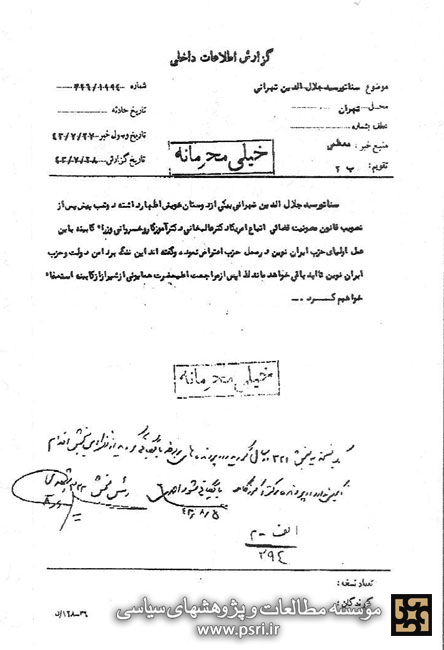 گزارش اطلاعات داخلی
موضوع سناتور سید جلال الدین تهرانی
محل تهران
عطف بشماره
منبع خبر: معظمی
تقویم: ب ۲
شماره ۳۲۶/۱۹۹۴
تاریخ حادثه
تاریخ وصول خبر ۴۳/۷/۲۷
تاریخ گزارش ۴۳/۷/۲۸
خیلی محرمانه
سناتور سید جلال الدین تهرانی بیکی از دوستان خویش اظهار داشته دو شب پیش پس از
تصویب قانون مصونیت قضائی اتباع امریکا دکتر عالیخانی دکتر آموزگار و خسروانی وزراء کابینه باین
عمل اولیای حزب ایران نوین در محل حزب اعتراض نموده و گفته اند این ننگ بر دامن دولت و حزب
ایران نوین تا ابد باقی خواهد ماند لذا پس از مراجعت اعلیحضرت همایونی از شیراز از کابینه استعفاء
خواهیم کرد .-
خیلی محرمانه
۴۳/۸/۵
الف - م
۲۹۴
تعداد نسخه:
گیرندگان:
۳۶-۱۶۸/ن
موسسه مطالعات و پژوهشهای سیاسی
www.psri.ir